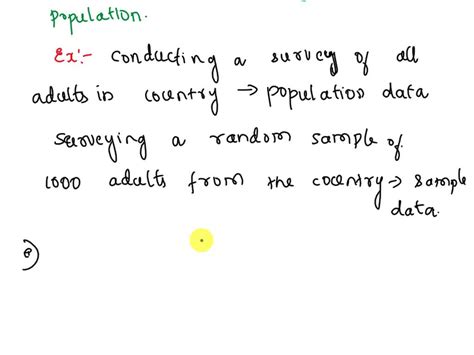 population.
Ex:- Conducting a survey of all
adults in country → population data
surveying a random sample of
1000 adults from the country → sample
data.
e)